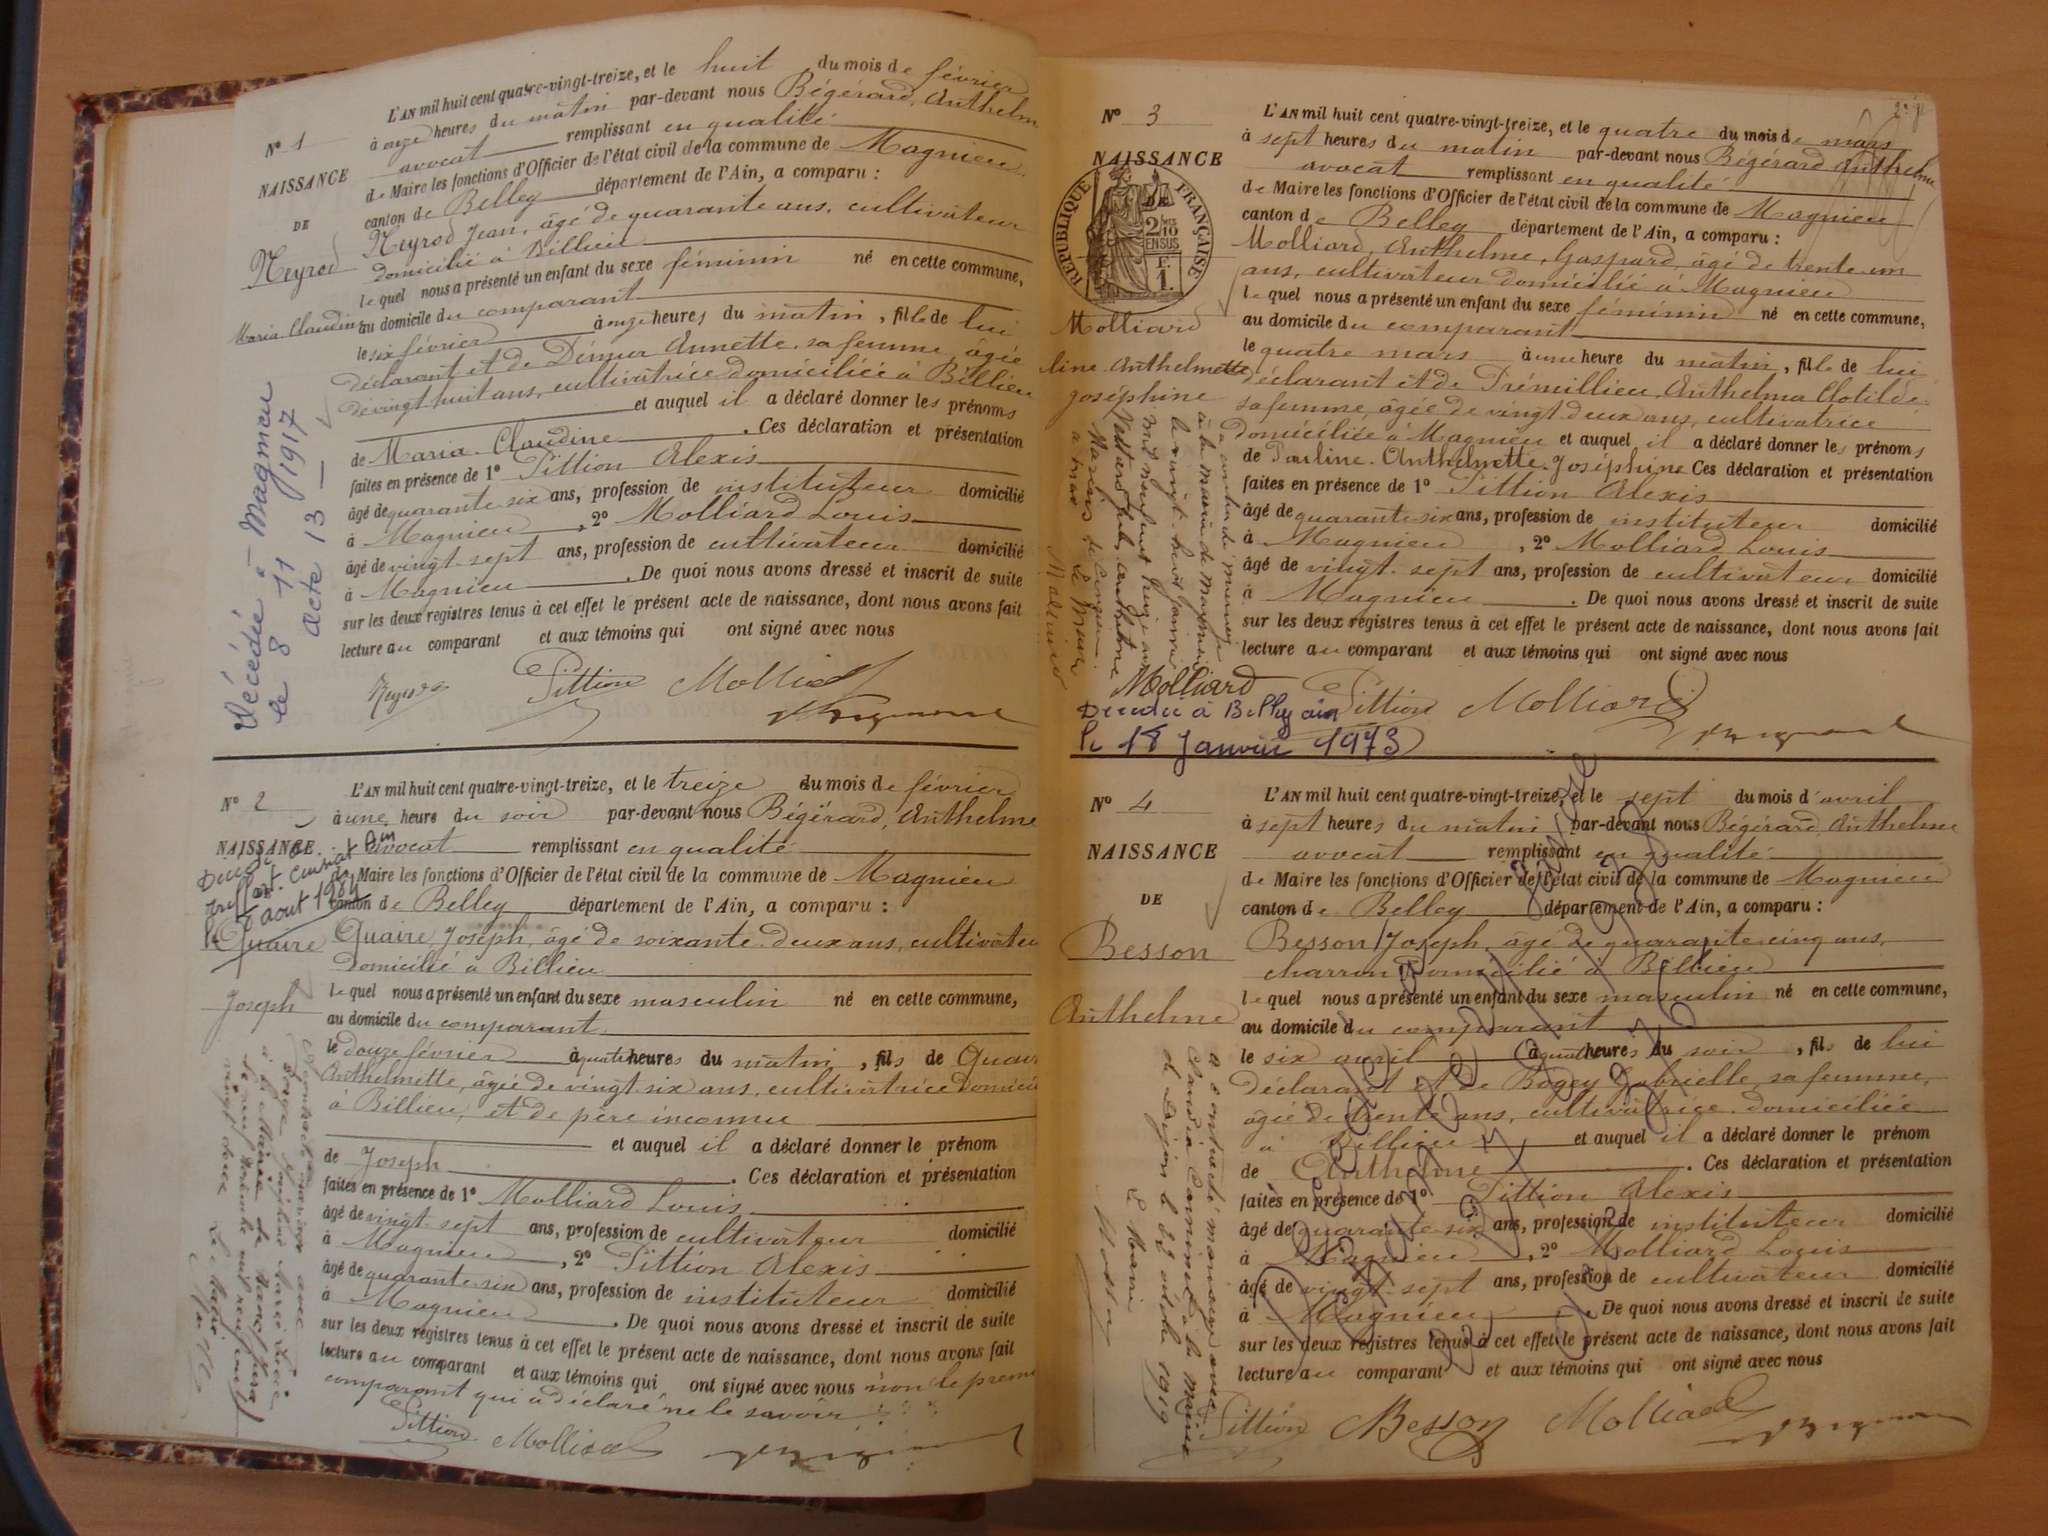 L'AN mil huit cent quatre-vingt-treize, et le huit du mois de février
à onze heures du matin par-devant nous Bégérard, Anthelm
avocat remplissant en qualité
de Maire les fonctions d'Officier de l'état civil de la commune de Magnieu
canton de Belley département de l'Ain, a comparu :
Neyrod Jean, âgé de quarante ans, cultivateur
domicilié à Billieu
lequel nous a présenté un enfant du sexe féminin né en cette commune,
au domicile du comparant
le six février à onze heures du matin, fille de lui
déclarant et de Démur Annette, sa femme, âgée
de vingt huit ans, cultivatrice domiciliée à Billieu
et auquel il a déclaré donner les prénoms
de Maria Claudine. Ces déclaration et présentation
faites en présence de 1° Pittion Alexis
âgé de quarante six ans, profession de instituteur domicilié
à Magnieu, 2° Molliard Louis
âgé de vingt sept ans, profession de cultivateur domicilié
à Magnieu. De quoi nous avons dressé et inscrit de suite
sur les deux registres tenus à cet effet le présent acte de naissance, dont nous avons fait
lecture au comparant et aux témoins qui ont signé avec nous
N° 1
NAISSANCE
DE
Neyrod
Maria Claudine
Décédée à Magnieu
le 8 11 1917
acte 13
Pittion Molliard
N° 2
NAISSANCE
Quaire
Joseph
aout 1984
L'AN mil huit cent quatre-vingt-treize, et le treize du mois de février
à une heure du soir par-devant nous Bégérard, Anthelme
avocat remplissant en qualité
de Maire les fonctions d'Officier de l'état civil de la commune de Magnieu
canton de Belley département de l'Ain, a comparu :
Quaire Joseph, âgé de soixante deux ans, cultivateu
domicilié à Billieu
lequel nous a présenté un enfant du sexe masculin né en cette commune,
au domicile du comparant
le douze février à quatre heures du matin, fils de Quair
Anthelmette, âgée de vingt six ans, cultivatrice domicili
à Billieu, et de père inconnu
et auquel il a déclaré donner le prénom
de Joseph. Ces déclaration et présentation
faites en présence de 1° Molliard Louis
âgé de vingt sept ans, profession de cultivateur domicilié
à Magnieu, 2° Pittion Alexis
âgé de quarante six ans, profession de instituteur domicilié
à Magnieu. De quoi nous avons dressé et inscrit de suite
sur les deux registres tenus à cet effet le présent acte de naissance, dont nous avons fait
lecture au comparant et aux témoins qui ont signé avec nous non le premi
comparant qui a déclaré ne le savoir
Pittion Molliard
N° 3
NAISSANCE
DE
RÉPUBLIQUE FRANÇAISE
2/10
EN SUS
F.
1.
Molliard
line Anthelmette
Joséphine
L'AN mil huit cent quatre-vingt-treize, et le quatre du mois de mars
à sept heures du matin par-devant nous Bégérard Anthelme
avocat remplissant en qualité
de Maire les fonctions d'Officier de l'état civil de la commune de Magnieu
canton de Belley département de l'Ain, a comparu :
Molliard, Anthelme, Gaspard, âgé de trente un
ans, cultivateur domicilié à Magnieu
lequel nous a présenté un enfant du sexe féminin né en cette commune,
au domicile du comparant
le quatre mars à une heure du matin, fille de lui
déclarant et de Trémillieu, Anthelma Clotilde
sa femme, âgée de vingt deux ans, cultivatrice
domiciliée à Magnieu et auquel il a déclaré donner les prénoms
de Pauline Anthelmette Joséphine Ces déclaration et présentation
faites en présence de 1° Pittion Alexis
âgé de quarante six ans, profession de instituteur domicilié
à Magnieu, 2° Molliard Louis
âgé de vingt sept ans, profession de cultivateur domicilié
à Magnieu. De quoi nous avons dressé et inscrit de suite
sur les deux registres tenus à cet effet le présent acte de naissance, dont nous avons fait
lecture au comparant et aux témoins qui ont signé avec nous
Molliard Pittion Molliard
Décédée à Belley ain
le 18 Janvier 1973
N° 4
NAISSANCE
DE
Besson
Anthelme
L'AN mil huit cent quatre-vingt-treize, et le sept du mois d'avril
à sept heures du matin par-devant nous Bégérard Anthelme
avocat remplissant en qualité
de Maire les fonctions d'Officier de l'état civil de la commune de Magnieu
canton de Belley département de l'Ain, a comparu :
Besson Joseph, âgé de quarante cinq ans,
charron domicilié à Billieu
lequel nous a présenté un enfant du sexe masculin né en cette commune,
au domicile du comparant
le six avril à quatre heures du soir, fils de lui
déclarant et de Bogey Gabrielle, sa femme,
âgée de trente ans, cultivatrice domiciliée
à Billieu et auquel il a déclaré donner le prénom
de Anthelme. Ces déclaration et présentation
faites en présence de 1° Pittion Alexis
âgé de quarante six ans, profession de instituteur domicilié
à Magnieu, 2° Molliard Louis
âgé de vingt sept ans, profession de cultivateur domicilié
à Magnieu. De quoi nous avons dressé et inscrit de suite
sur les deux registres tenus à cet effet le présent acte de naissance, dont nous avons fait
lecture au comparant et aux témoins qui ont signé avec nous
a contracté mariage avec
octobre 1919
Le Maire
Pittion Besson Molliard